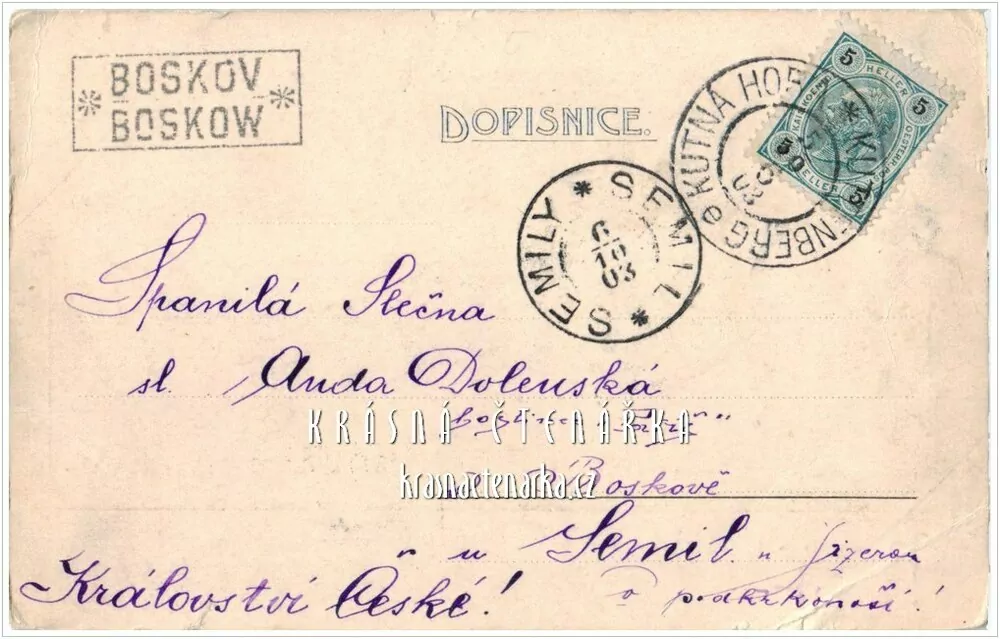 BOSKOV
BOSKOW
DOPISNICE.
KUTNÁ HORA
KUTTENBERG e
5 HELLER 5
5 HELLER 5
SEMIL * SEMILY *
6
10
03
Spanilá Slečna
sl. Anda Dolenská
KRÁSNÁ ČTENÁŘKA
krasnactenarka.cz
Boskově
u Semil n Jizerou
Království České!
v podkrkonoší!